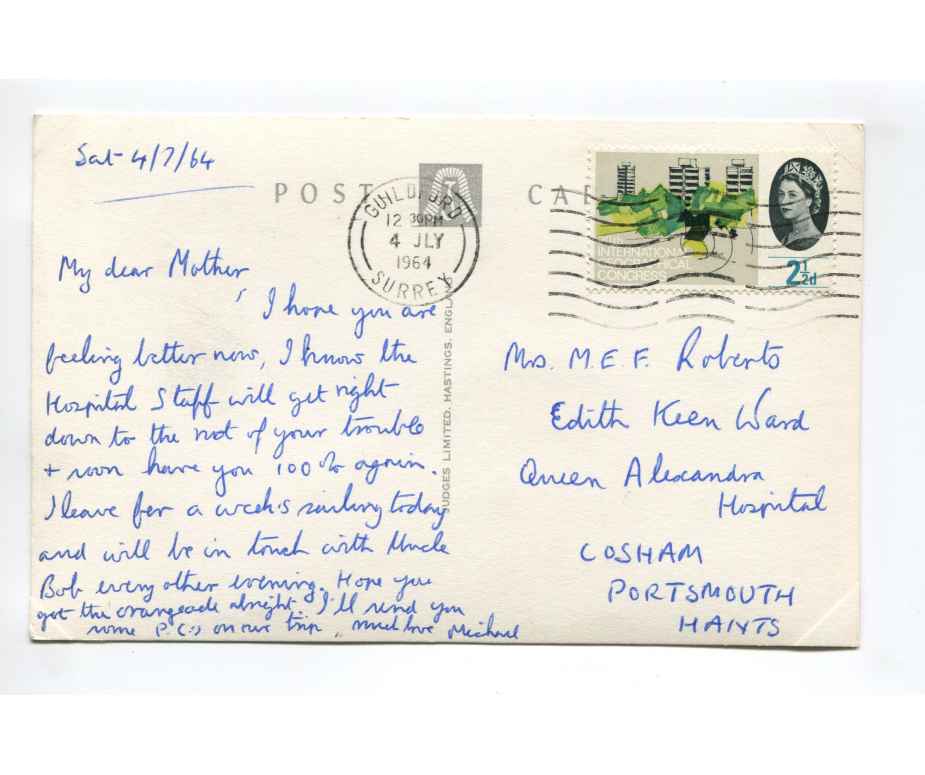 Sat 4/7/64
POST CAR
GUILDFORD
12 30PM
4 JLY
1964
SURREY
INTERNATIONAL
GEOGRAPHICAL
CONGRESS
2½d
My dear Mother,
I hope you are
feeling better now, I know the
Hospital Staff will get right
down to the root of your trouble
+ soon have you 100% again.
I leave for a week's sailing today
and will be in touch with Uncle
Bob every other evening. Hope you
got the orangeade alright. I'll send you
some P.C.s on our trip, much love Michael
JUDGES LIMITED, HASTINGS, ENGLAND
Mrs. M.E.F. Roberts
Edith Keen Ward
Queen Alexandra
Hospital
COSHAM
PORTSMOUTH
HANTS